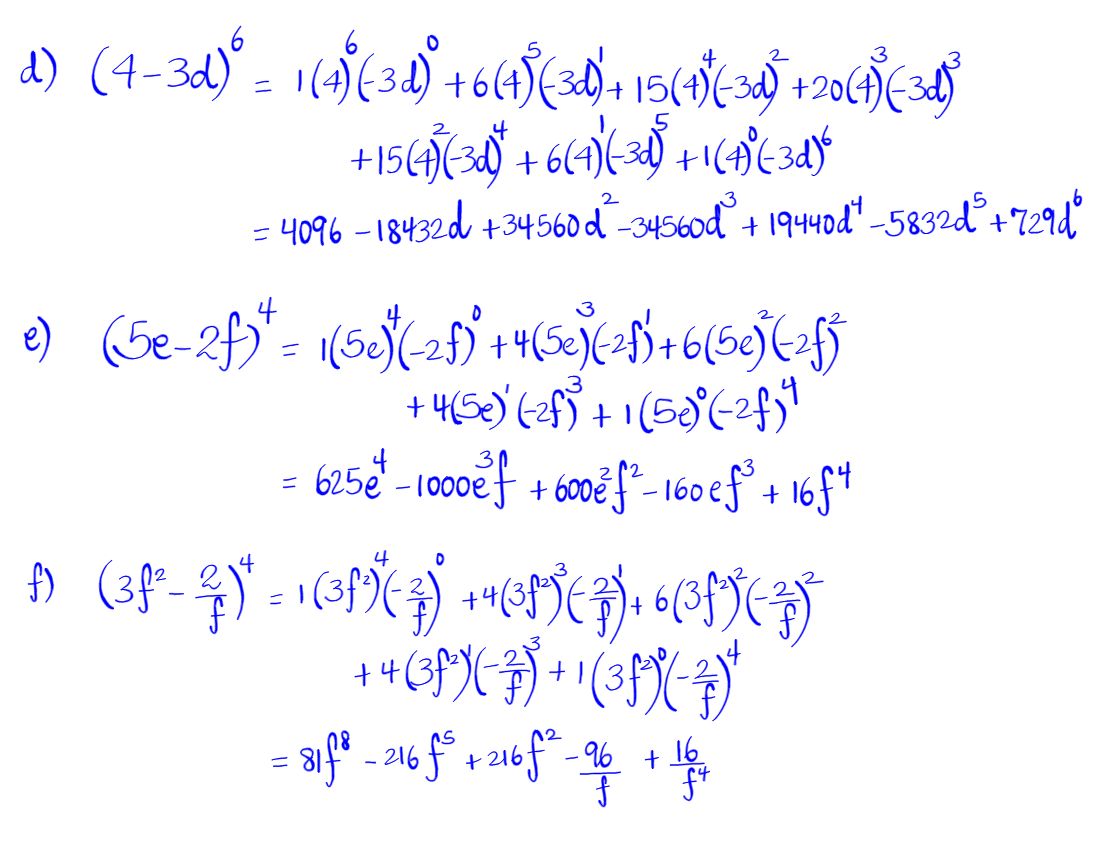 d) (4-3d)⁶ = 1(4)⁶(-3d)⁰ + 6(4)⁵(-3d)¹ + 15(4)⁴(-3d)² + 20(4)³(-3d)³
+ 15(4)²(-3d)⁴ + 6(4)¹(-3d)⁵ + 1(4)⁰(-3d)⁶
= 4096 - 18432d + 34560d² - 34560d³ + 19440d⁴ - 5832d⁵ + 729d⁶
e) (5e-2f)⁴ = 1(5e)⁴(-2f)⁰ + 4(5e)³(-2f)¹ + 6(5e)²(-2f)²
+ 4(5e)¹(-2f)³ + 1(5e)⁰(-2f)⁴
= 625e⁴ - 1000e³f + 600e²f² - 160ef³ + 16f⁴
f) (3f² - 2/f)⁴ = 1(3f²)⁴(-2/f)⁰ + 4(3f²)³(-2/f)¹ + 6(3f²)²(-2/f)²
+ 4(3f²)¹(-2/f)³ + 1(3f²)⁰(-2/f)⁴
= 81f⁸ - 216f⁵ + 216f² - 96/f + 16/f⁴